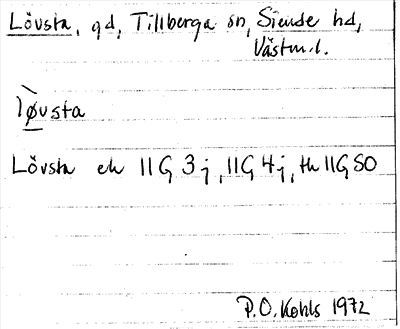 Lövsta, gd, Tillberga sn, Siende hd,
Västm.l.
løvsta
Lövsta ek 11G 3j, 11G 4j, th 11G SO
P.O. Kohls 1972